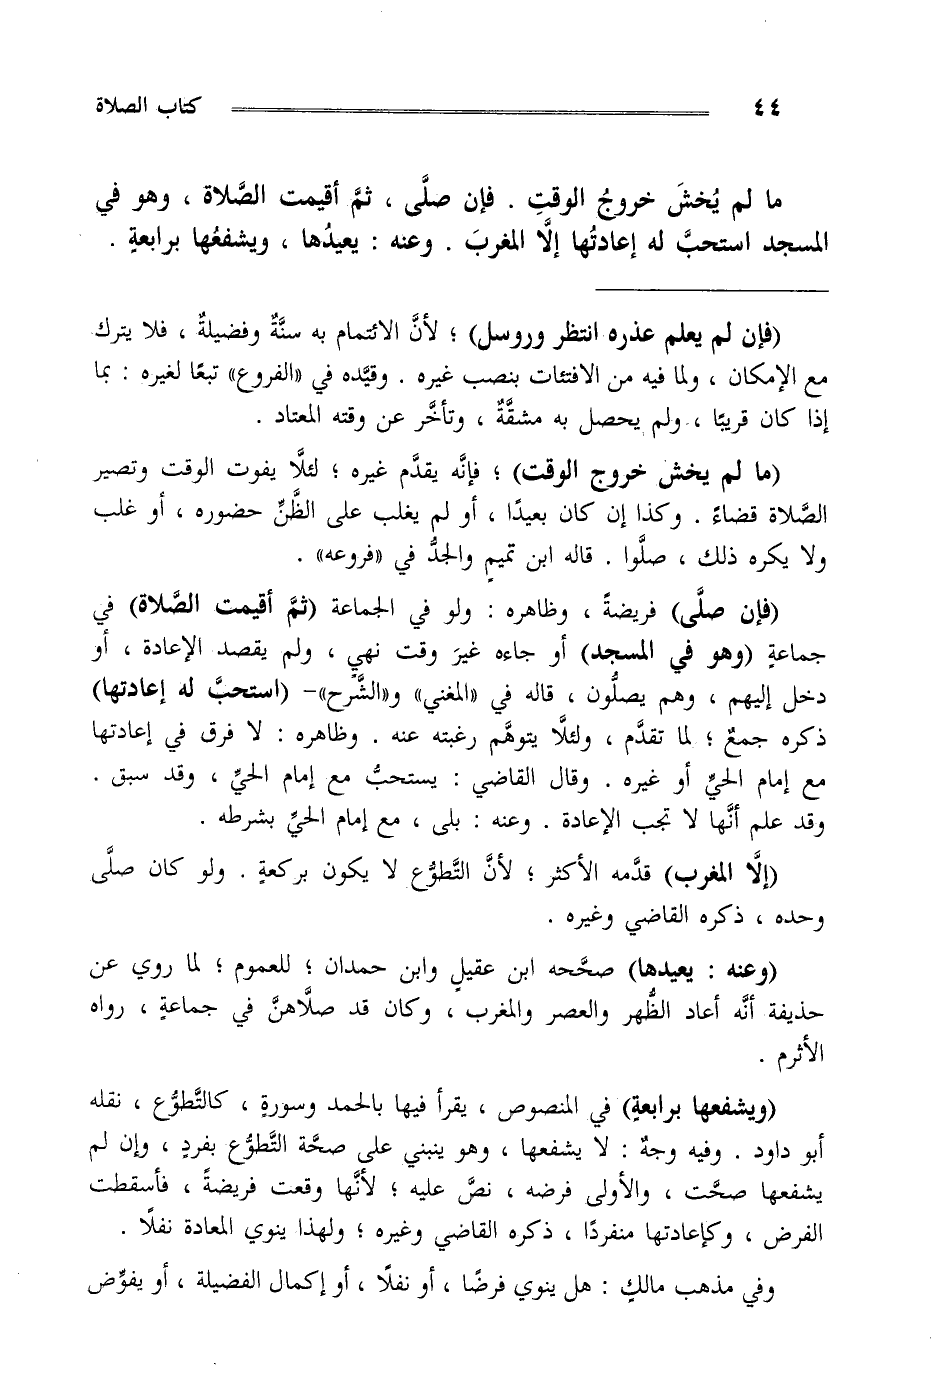 ٤٤ كتاب الصلاة
ما لم يُخشَ خروجُ الوقتِ . فإن صلَّى ، ثمَّ أقيمت الصَّلاة ، وهو في
المسجد استحبَّ له إعادتُها إلَّا المغربَ . وعنه : يعيدُها ، ويشفعُها برابعةٍ .
(فإن لم يعلم عذره انتظر وروسل) ؛ لأنَّ الائتمام به سنَّةٌ وفضيلةٌ ، فلا يترك
مع الإمكان ، ولما فيه من الافتئات بنصب غيره . وقيَّده في «الفروع» تبعًا لغيره : بما
إذا كان قريبًا ، ولم يحصل به مشقَّةٌ ، وتأخَّر عن وقته المعتاد .
(ما لم يخش خروج الوقت) ؛ فإنَّه يقدَّم غيره ؛ لئلَّا يفوت الوقت وتصير
الصَّلاة قضاءً . وكذا إن كان بعيدًا ، أو لم يغلب على الظَّنِّ حضوره ، أو غلب
ولا يكره ذلك ، صلَّوا . قاله ابن تميمٍ والجدُّ في «فروعه» .
(فإن صلَّى) فريضةً ، وظاهره : ولو في الجماعة (ثمَّ أقيمت الصَّلاة) في
جماعةٍ (وهو في المسجد) أو جاءه غيرَ وقت نهيٍ ، ولم يقصد الإعادة ، أو
دخل إليهم ، وهم يصلُّون ، قاله في «المغني» و«الشَّرح»- (استحبَّ له إعادتها)
ذكره جمعٌ ؛ لما تقدَّم ، ولئلَّا يتوهَّم رغبته عنه . وظاهره : لا فرق في إعادتها
مع إمام الحيِّ أو غيره . وقال القاضي : يستحبُّ مع إمام الحيِّ ، وقد سبق .
وقد علم أنَّها لا تجب الإعادة . وعنه : بلى ، مع إمام الحيِّ بشرطه .
(إلَّا المغرب) قدَّمه الأكثر ؛ لأنَّ التَّطوُّع لا يكون بركعةٍ . ولو كان صلَّى
وحده ، ذكره القاضي وغيره .
(وعنه : يعيدها) صحَّحه ابن عقيلٍ وابن حمدان ؛ للعموم ؛ لما روي عن
حذيفة أنَّه أعاد الظُّهر والعصر والمغرب ، وكان قد صلَّاهنَّ في جماعةٍ ، رواه
الأثرم .
(ويشفعها برابعةٍ) في المنصوص ، يقرأ فيها بالحمد وسورةٍ ، كالتَّطوُّع ، نقله
أبو داود . وفيه وجهٌ : لا يشفعها ، وهو ينبني على صحَّة التَّطوُّع بفردٍ ، وإن لم
يشفعها صحَّت ، والأولى فرضه ، نصَّ عليه ؛ لأنَّها وقعت فريضةً ، فأسقطت
الفرض ، وكإعادتها منفردًا ، ذكره القاضي وغيره ؛ ولهذا ينوي المعادة نفلًا .
وفي مذهب مالكٍ : هل ينوي فرضًا ، أو نفلًا ، أو إكمال الفضيلة ، أو يفوِّض